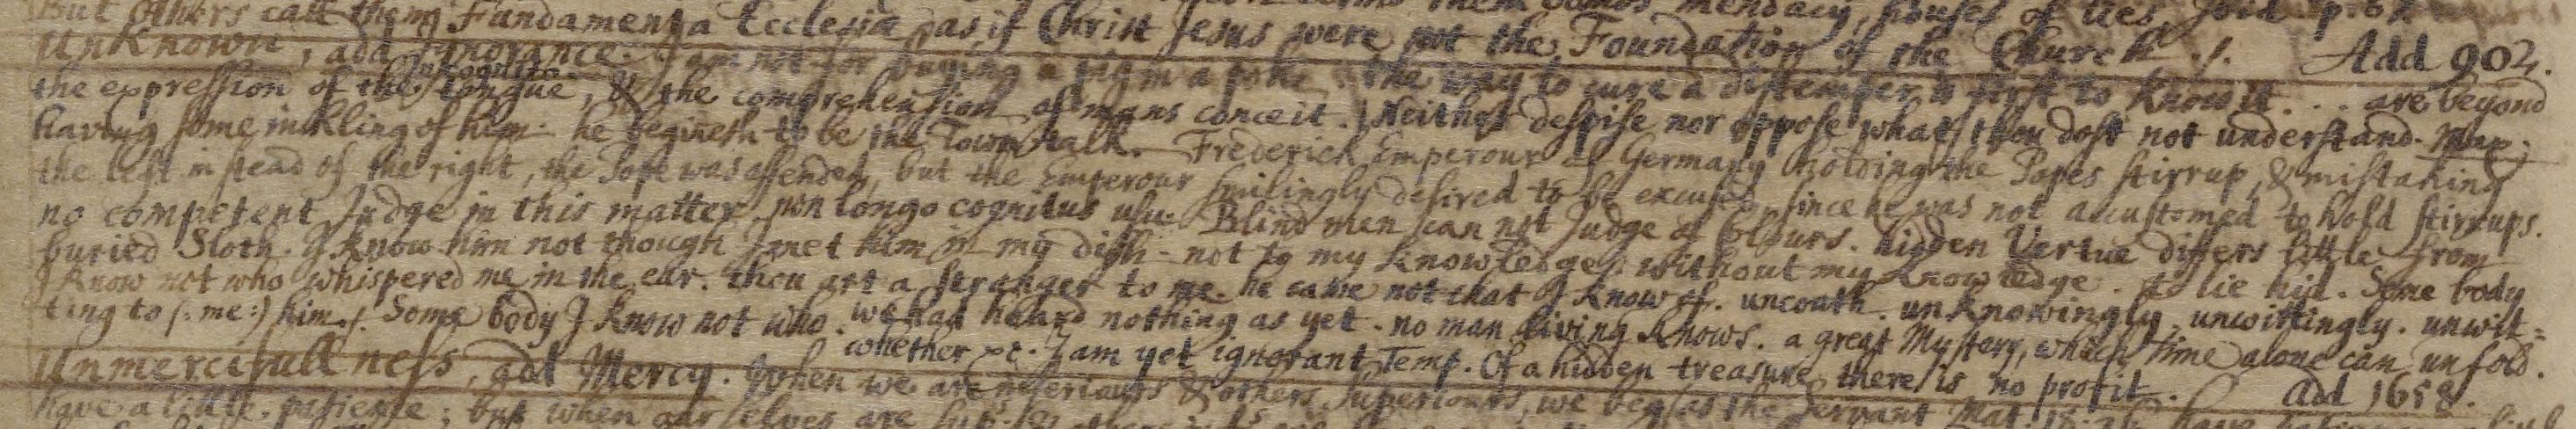 But others call them Fundamenta Ecclesiæ, as if Christ Jesus were not the Foundation of the Church ./.
Unknown, add Ignorance. I am not for buying a pig in a poke. the way to cure a distemper is first to know it. . . are beyond Add 902.
the expression of the tongue, & the comprehension of mans conceit. Neither despise nor oppose what thou dost not understand. Max;
Incognito.
having some inkling of him. he begineth to be the Town talk. Frederick Emperour of Germany holding the Popes stirrup, & mistaking
the left in stead of the right, the Pope was offended, but the Emperour smilingly desired to be excused, since he was not accustomed to hold stirrups.
no competent Judge in this matter. non longo cognitus usu. Blind men can not Judge of Colours. hidden Vertue differs little from
buried Sloth. I know him not though I met him in my dish - not to my knowledge. without my knowledge. to lie hid. Some body
I know not who whispered me in the ear. thou art a stranger to me. he came not that I know of. uncouth. unknowingly, unwittingly. unwit=
ting to (: me :) him ./. Some body I know not who. we had heard nothing as yet. no man living knows. a great Mystery, which time alone can unfold.
whether &c. I am yet ignorant Temp. Of a hidden treasure there is no profit.
Unmercifullness, add Mercy. When we are inferiours & others superiours, we beg as the Servant Mat. 18. add 1658.
have a little patience; but when our selves are